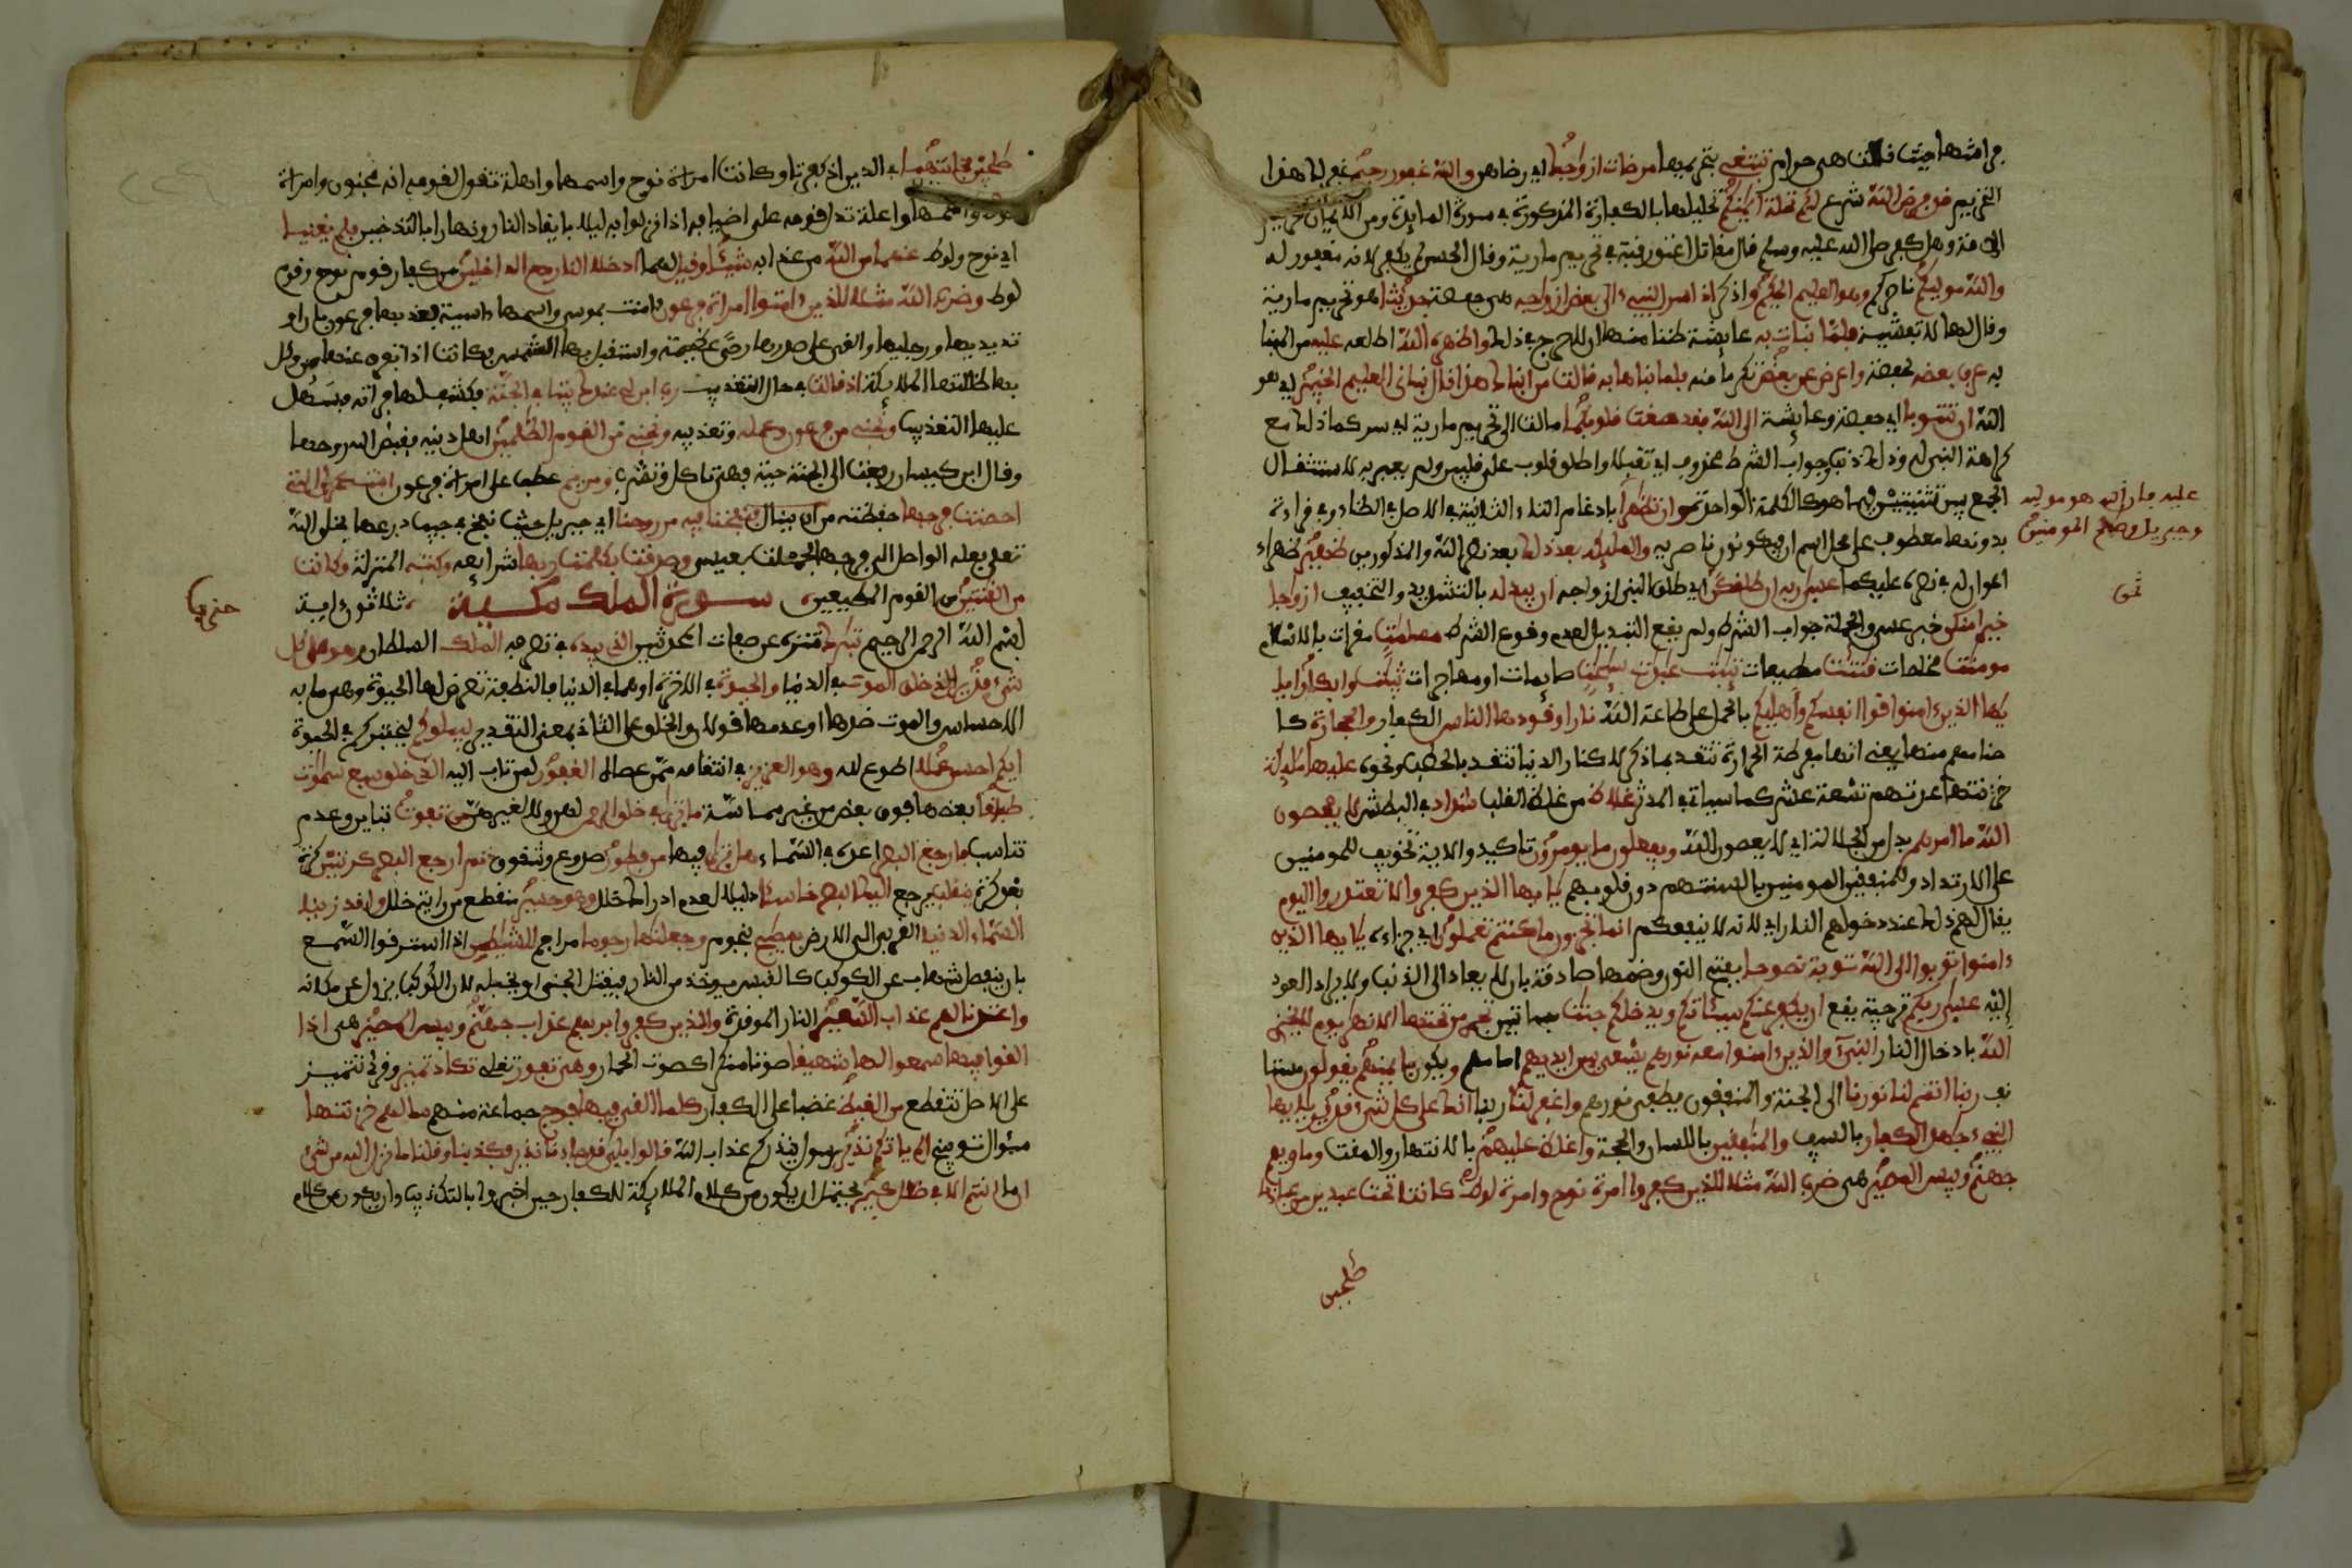 فراشها حيث قلت هي حرام تبتغي بتحريمها مرضات ازوجك اي رضاهن والله غفور رحيم غفر لك هذا
التحريم قد فرض الله شرع لكم تحلة ايمنكم تحليلها بالكفارة المذكورة في سورة المايدة ومن الايمان تحريم
الامة وهل كفر صلى الله عليه وسلم قال مقاتل اعتق رقبة في تحريم مارية وقال الحسن لم يكفر لانه مغفور له
والله موليكم ناصركم وهو العليم الحكيم واذكر اذ اسر النبيء الى بعض ازواجه هي حفصة حديثا هو تحريم مارية
وقال لها لا تفشيه فلما نبات به عايشة ظنا منها ان لا حرج في ذلك واظهره الله اطلعه عليه من المنبا
به عرف بعضه لحفصة واعرض عن بعض تكرما منه فلما نباها به قالت من انباك هذا قال نباني العليم الخبير اي هو
الله ان تتوبا اي حفصة وعايشة الى الله فقد صغت قلوبكما مالت الى تحريم مارية اي سركما ذلك مع
كراهة النبي له وذلك ذنب وجواب الشرط محذوف اي تقبلا واطلق قلوب على قلبين ولم يعبر به لاستثقال
الجمع بين تثنيتين فيما هو كالكلمة الواحدة وان تظهرا بادغام التاء الثانية في الاصل في الظاء وفي قراءة
عليه فان الله هو موليه
وجبريل وصلح المومنين
بدونها معطوف على محل اسم ان فيكونون ناصريه والمليكة بعد ذلك بعد نصر الله والمذكورين ظهير ظهراء
اعوان له في نصره عليكما عسى ربه ان طلقكن اي طلق النبي ازواجه ان يبدله بالتشديد والتخفيف ازوجا
خيرا منكن خبر عسى والجملة جواب الشرط ولم يقع التبديل لعدم وقوع الشرط مسلمت مقرات بالاسلام
مومنت مخلصات قنتت مطيعات تيبت عبدت سيحت صايمات او مهاجرات ثيبت وابكارا يا
يها الذين ءامنوا قوا انفسكم واهليكم بالحمل على طاعة الله نارا وقودها الناس الكفار والحجارة كا
صنامهم منها يعني انها مفرطة الحرارة تتقد بما ذكر لا كنار الدنيا تتقد بالحطب ونحوه عليها مليكة
خزنتها عدتهم تسعة عشر كما سياتي في المدثر غلاظ من غلظ القلب شداد في البطش لا يعصون
الله ما امرهم بدل من الجلالة اي لا يعصون الله ويفعلون ما يومرون تاكيد والاية تخويف للمومنين
على الارتداد وللمنفقين المومنين بالسنتهم دون قلوبهم يايها الذين كفروا لا تعتذروا اليوم
يقال لهم ذلك عند دخولهم النار اي لانه لا ينفعكم انما تجزون ما كنتم تعملون اي جزاءه يايها الذين
ءامنوا توبوا الى الله توبة نصوحا بفتح النون وضمها صادقة بان لا يعاد الى الذنب ولا يراد العود
اليه عسى ربكم ترجية يقع ان يكفر عنكم سيئاتكم ويدخلكم جنت بساتين تجري من تحتها الانهر يوم لا يخزي
الله بادخال النار النبيء والذين ءامنوا معه نورهم يسعى بين ايديهم امامهم ويكون بايمنهم يقولون مستا
نف ربنا اتمم لنا نورنا الى الجنة والمنفقون يطفى نورهم واغفر لنا ربنا انك على كل شيء قدير يايها
النبيء جهد الكفار بالسيف والمنفقين باللسان والحجة واغلظ عليهم بالانتهار والمقت وماويهم
جهنم وبيس المصير هي ضرب الله مثلا للذين كفروا امرة نوح وامرة لوط كانتا تحت عبدين من عبادنا
صلحين
صلحين فخانتهما في الدين اذ كفرتا وكانت امراة نوح واسمها واهلة تقول لقومه انه مجنون وامراة
لوط واسمها واعلة تدل قومه على اضيافه اذا نزلوا به ليلا بايقاد النار ونهارا بالتدخين فلم يغنيا
اي نوح ولوط عنهما من الله من عذابه شيئا وقيل لهما ادخلا النار مع الدخلين من كفار قوم نوح وقوم
لوط وضرب الله مثلا للذين ءامنوا امراة فرعون ءامنت بموسى واسمها ءاسية فعذبها فرعون بان او
تد يديها ورجليها والقى على صدرها رحى عظيمة واستقبل بها الشمس فكانت اذا تفرق عنها من وكل
بها ظللتها الملايكة اذ قالت في حال التعذيب رب ابن لي عندك بيتا في الجنة فكشف لها فراته فسهل
عليها التعذيب ونجني من فرعون وعمله وتعذيبه ونجني من القوم الظلمين اهل دينه فقبض الله روحها
وقال ابن كيسان رفعت الى الجنة حية فهي تاكل وتشرب ومريم عطف على امراة فرعون ابنت عمرن التي
احصنت فرجها حفظته من ان ينال فنفخنا فيه من روحنا اي جبريل حيث نفخ في جيب درعها بخلق الله
تعلى فعله الواصل الى فرجها فحملت بعيسى وصدقت بكلمت ربها شرايعه وكتبه المنزلة وكانت
من القنتين من القوم المطيعين سورة الملك مكية ثلاثون اية
حزب
بسم الله الرحمن الرحيم تبرك تنزه عن صفات المحدثين الذي بيده في تصرفه الملك السلطان وهو على كل
شيء قدير الذي خلق الموت في الدنيا والحيوة في الاخرة او هما في الدنيا فالنطفة تعرض لها الحيوة وهي ما به
الاحساس والموت ضدها او عدمها قولان والخلق على الثاني بمعنى التقدير ليبلوكم ليختبركم في الحيوة
ايكم احسن عملا اطوع لله وهو العزيز في انتقامه ممن عصاه الغفور لمن تاب اليه الذي خلق سبع سموت
طباقا بعضها فوق بعض من غير مماسة ما ترى في خلق الرحمن لهن ولا لغيرهن من تفوت تباين وعدم
تناسب فارجع البصر اعده في السماء هل ترى فيها من فطور صدوع وشقوق ثم ارجع البصر كرتين كرة
بعد كرة ينقلب يرجع اليك البصر خاسئا ذليلا لعدم ادراك خلل وهو حسير منقطع من رؤية خلل ولقد زينا
السماء الدنيا القربى الى الارض بمصبيح بنجوم وجعلنها رجوما مراجم للشيطين اذا استرقوا السمع
بان ينفصل شهاب عن الكوكب كالقبس يوخذ من النار فيقتل الجني او يخبله لا ان الكوكب يزول عن مكانه
واعتدنا لهم عذاب السعير النار الموقدة وللذين كفروا بربهم عذاب جهنم وبيس المصير هي اذا
القوا فيها سمعوا لها شهيقا صوتا منكرا كصوت الحمار وهي تفور تغلي تكاد تميز وقرئ تتميز
على الاصل تتقطع من الغيظ غضبا على الكفار كلما القي فيها فوج جماعة منهم سالهم خزنتها
سؤال توبيخ الم ياتكم نذير رسول ينذركم عذاب الله قالوا بلى قد جاءنا نذير فكذبنا وقلنا ما نزل الله من شيء
ان ما انتم الا في ضلل كبير يحتمل ان يكون من كلام الملايكة للكفار حين اخبروا بالتكذيب وان يكون من كلام